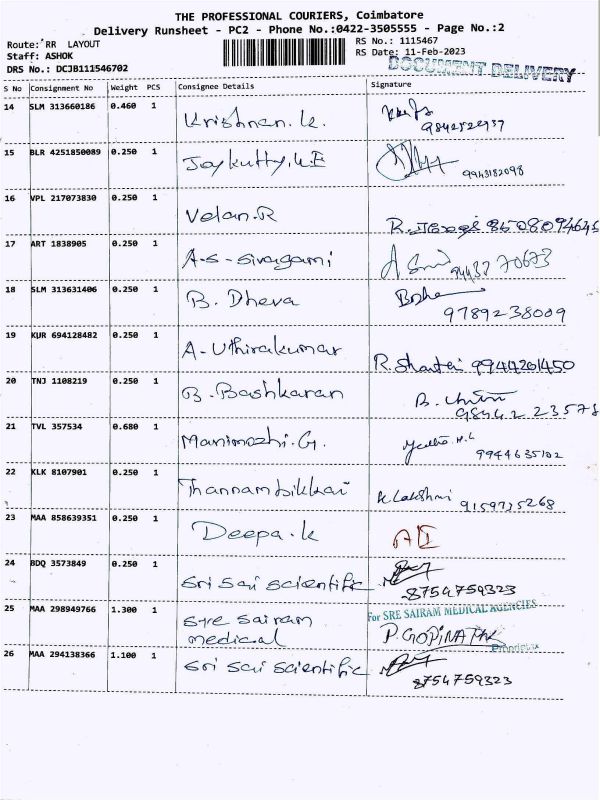 THE PROFESSIONAL COURIERS, Coimbatore
Delivery Runsheet - PC2 - Phone No.:0422-3505555 - Page No.:2
Route: RR LAYOUT
RS No.: 1115467
Staff: ASHOK
RS Date: 11-Feb-2023
DRS No.: DCJB111546702
DOCUMENT DELIVERY
S No Consignment No Weight PCS Consignee Details Signature
14 SLM 313660186 0.460 1 Krishnan.K.
15 BLR 4251850089 0.250 1 Joykutty.K.E 9943182098
16 VPL 217073830 0.250 1 Velan.R
17 ART 1838905 0.250 1 A-S-Sivagami 94432 70673
18 SLM 313631406 0.250 1 B. Dheva 9789238009
19 KUR 694128482 0.250 1 A-Uthirakumar R. Shanthi 9944201450
20 TNJ 1108219 0.250 1 B. Bashkaran 98442 23578
21 TVL 357534 0.680 1 Manimozhi.G. 9944635102
22 KLK 8107901 0.250 1 Thannambikkai K Lakshmi 9159735268
23 MAA 858639351 0.250 1 Deepa.K
24 BDQ 3573849 0.250 1 Sri Sai Scientific 8754759323
25 MAA 298949766 1.300 1 Sre Sairam medical For SRE SAIRAM MEDICAL AGENCIES
P. GOPINATH
Proprietor
26 MAA 294138366 1.100 1 Sri Sai Scientific 8754759323